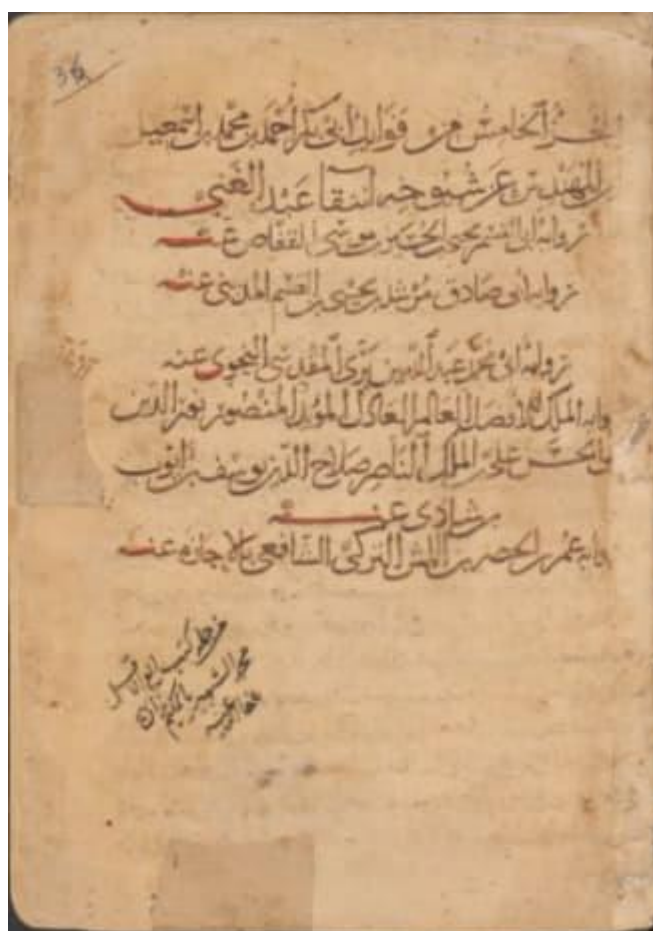 36
الجزء الخامس من فوائد ابي بكر احمد بن محمد بن اسمعيل
بن المهندس عن شيوخه انتقا عبد الغني
رواية ابي القسم يحيى بن الحسين بن موسى القفاص عنه
رواية ابي صادق مرشد بن يحيى بن القسم المديني عنه
رواية ابي محمد عبد الله بن بري المقدسي النحوي عنه
رواية الملك الافضل العالم العادل المؤيد المنصور نور الدين
ابي الحسن علي بن الملك الناصر صلاح الدين يوسف بن ايوب
بن شادي عنه
رواية عمر بن الخضر بن اللمش التركي الشافعي بالاجازة عنه
من كتب
محمد الشهير